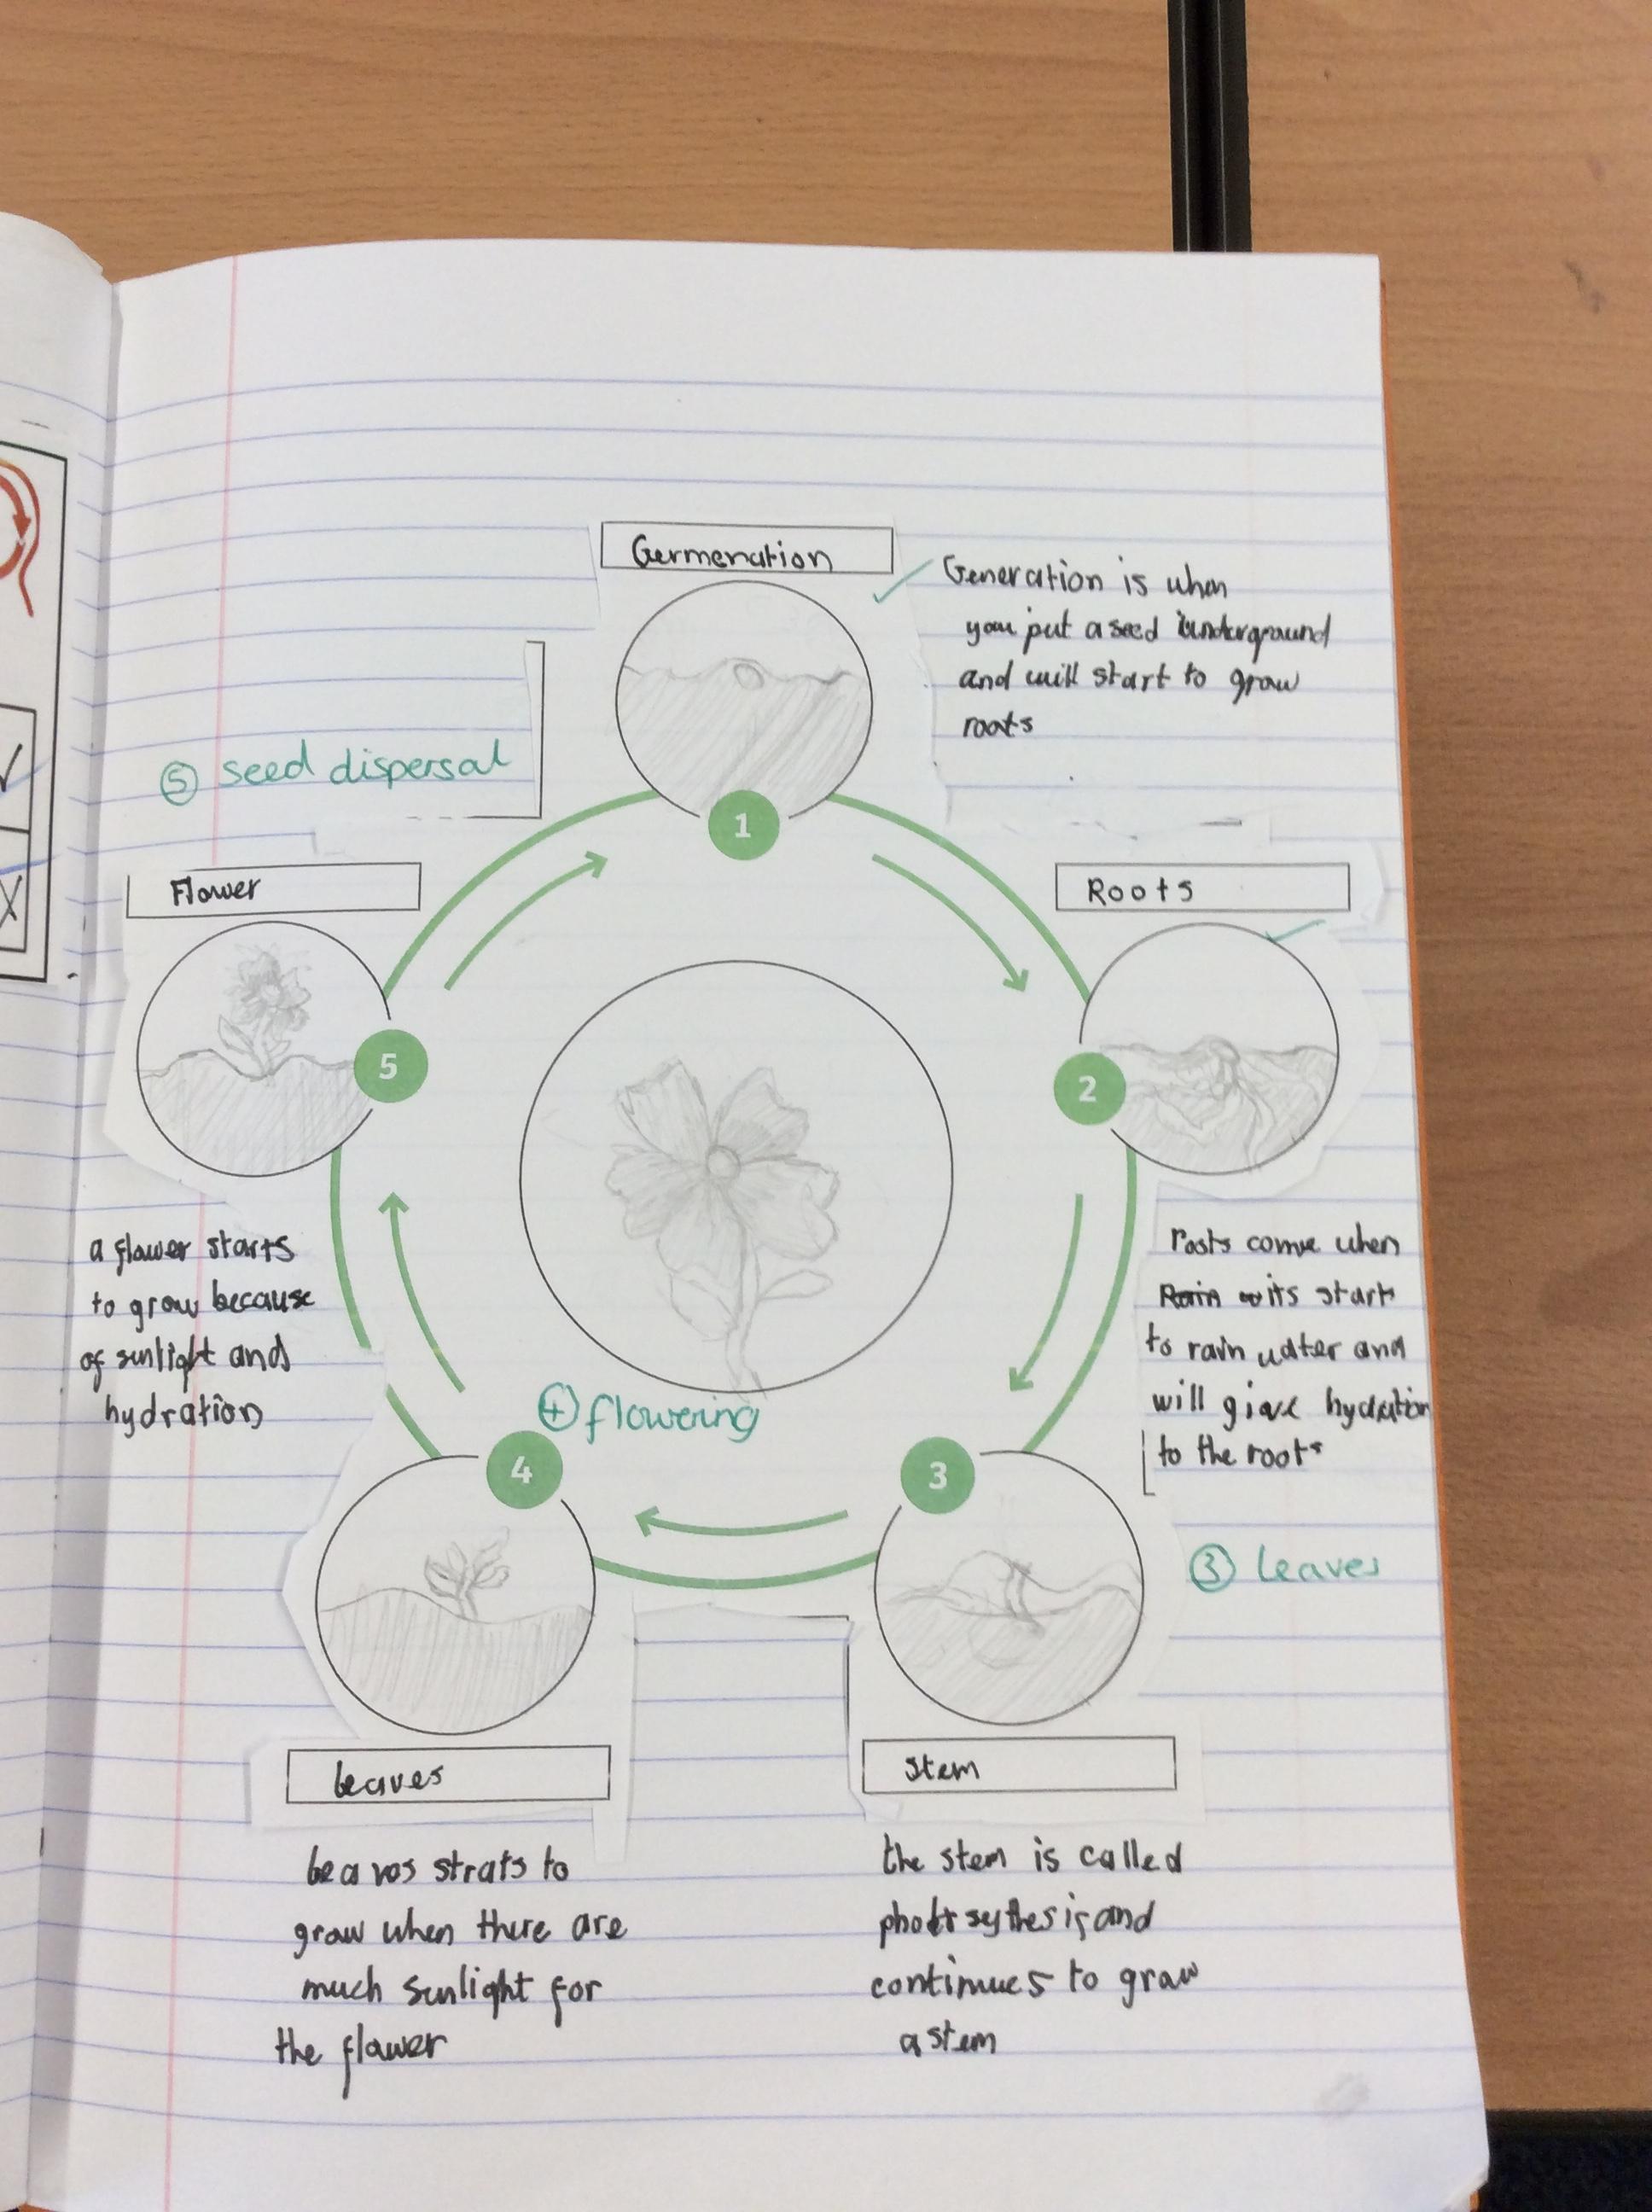 Germenation
Generation is when
you put a seed underground
and will start to grow
roots
1
⑤ seed dispersal
Flower
5
a flower starts
to grow because
of sunlight and
hydration
Roots
2
roots come when
Rain its start
to rain water and
will give hydration
to the roots
④ flowering
4
3
③ leaves
leaves
leavos strats to
grow when there are
much sunlight for
the flower
Stem
the stem is called
and
continues to grow
a stem